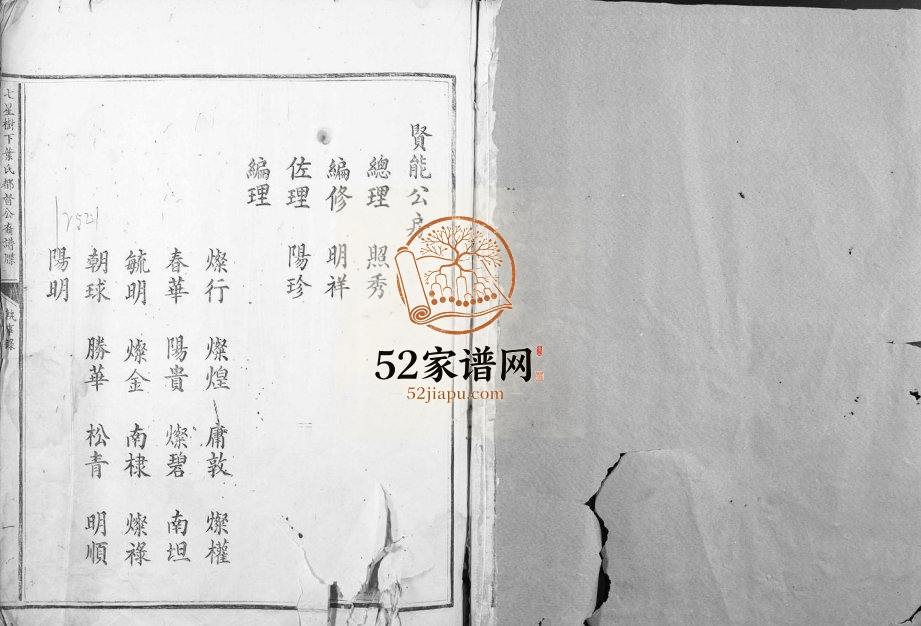 賢能公房
總理 照秀
編修 明祥
佐理 陽珍
編理
燦行 燦煌 庸敦 燦權
春華 陽貴 燦碧 南坦
毓明 燦金 南棣 燦祿
朝球 勝華 松青 明順
陽明
七星樹下葉氏都督公裔譜牒
一
52家谱网
52jiapu.com